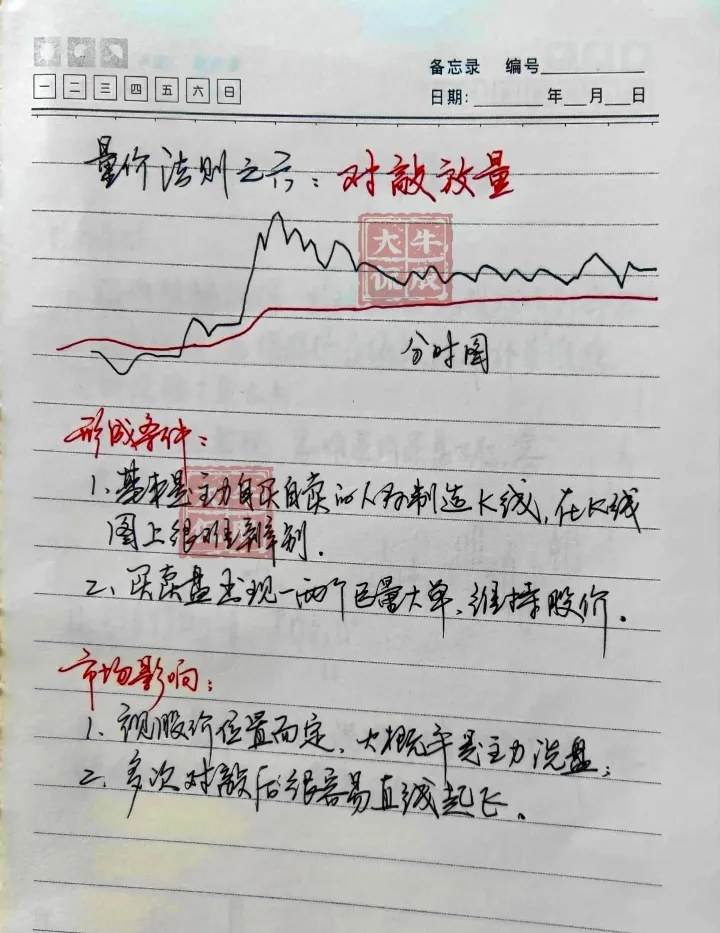 备忘录 编号
一 二 三 四 五 六 日
日期: 年 月 日
量价法则之六：对敲放量
大牛
分时图
形成条件：
1、基本是主力自买自卖的人为制造K线，在K线
图上很难辨别.
2、买卖盘出现一两个巨量大单、维持股价.
市场影响：
1、视股价位置而定，大概率是主力洗盘；
2、多次对敲后很容易直线起飞.